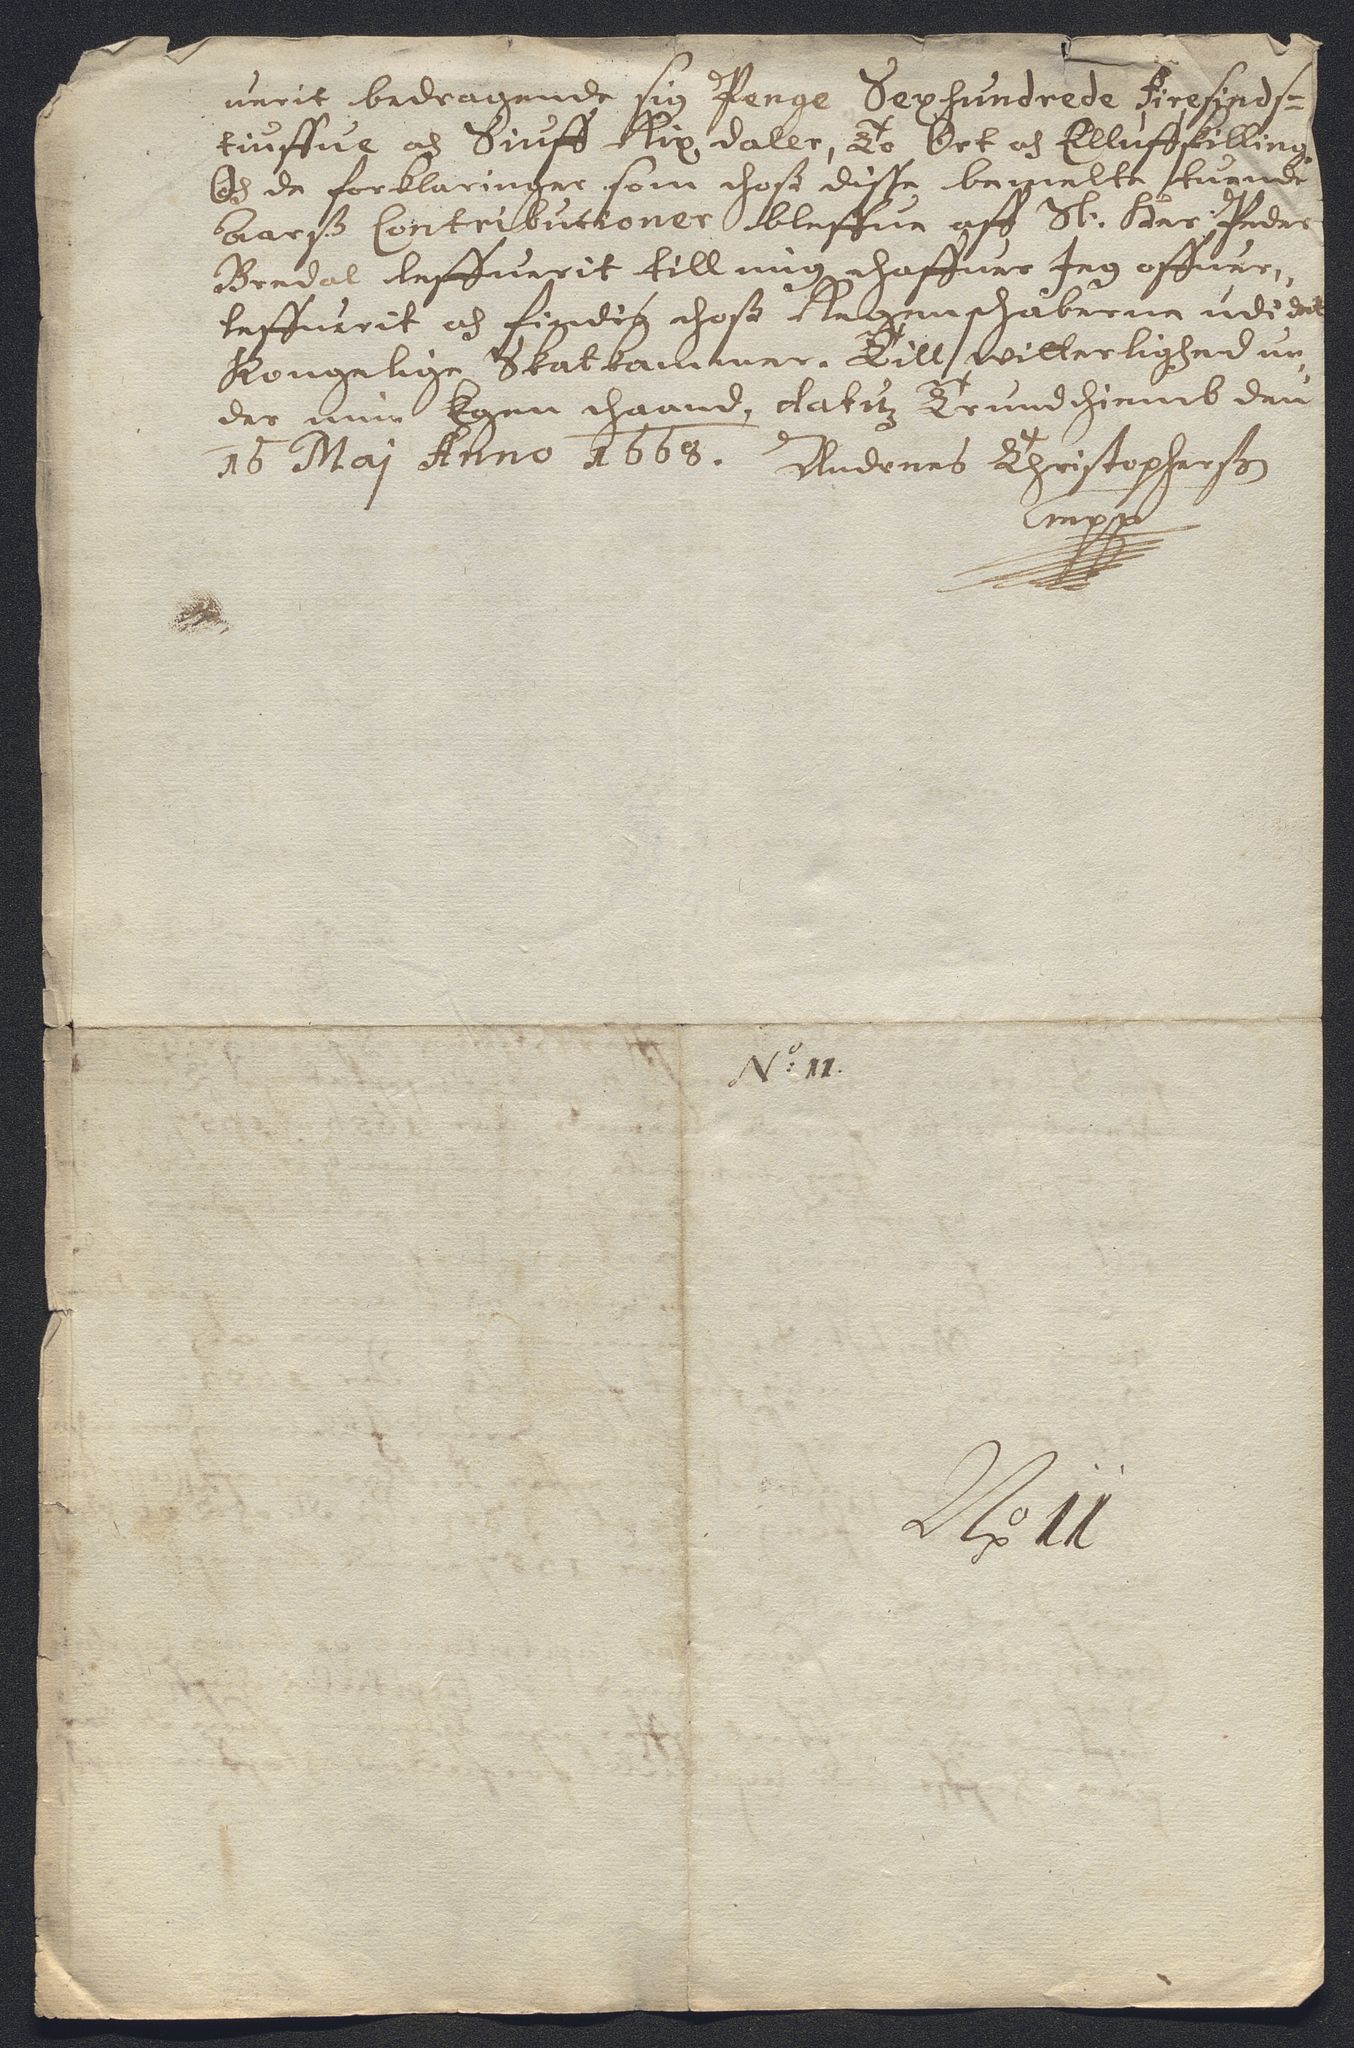 uerit bedragende sig Penge Sexhundrede firesinds-
tiuffue och Siuff Rix daler, To Ort och Elluff skilling.
Och de forklaringer som hoss disse bemelte tuende
Aarss Contributioner bleffue aff Sl. Her Peder
Bredal leffuerit till mig, haffuer Jeg offuer,,
leffuerit och findis hoss Regenschaberne udi det
Kongelige Skatkammer. Till witterlighed un,,
der min Egen haand, datutz Trundhiemb den
16 Maj Anno 1668. Andreas Christophersen
mpp
No: 11.
No 11